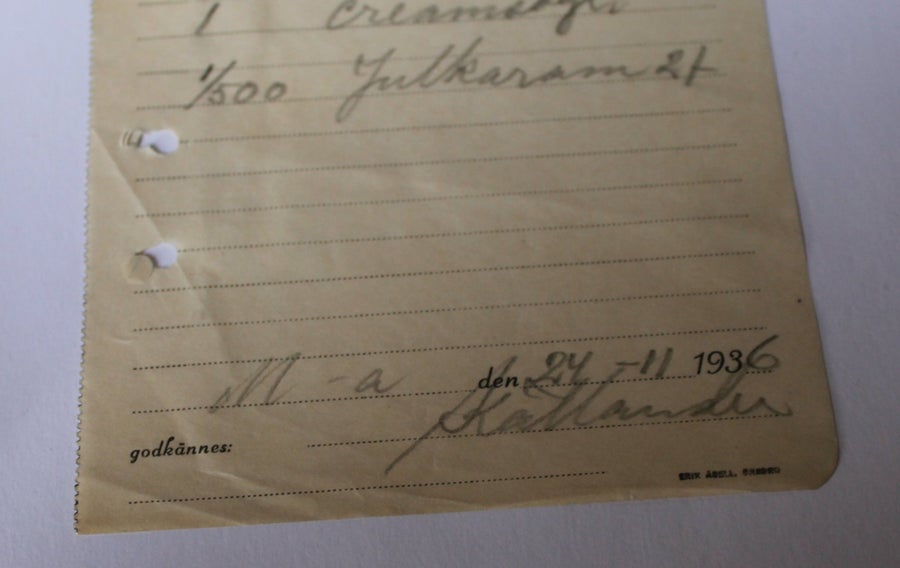 1
1/500 Julkaram 2t
M-a den 24 -11 1936
Kallander
godkännes:
ERIK ABELL, ÖREBRO